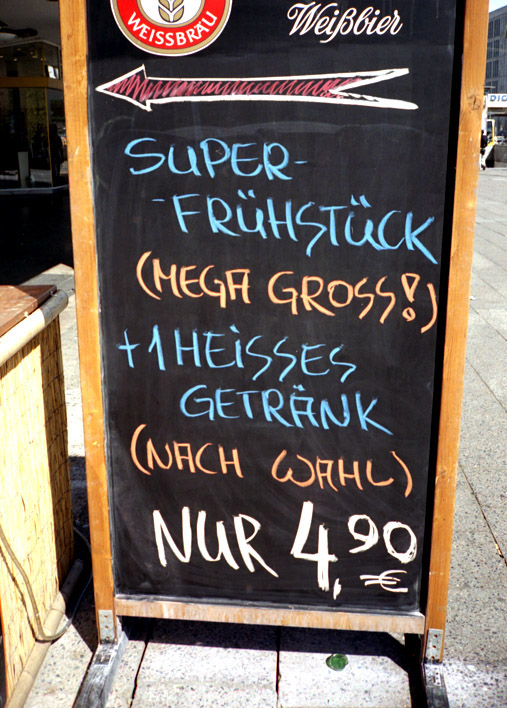 WEISSBRÄU
Weißbier
SUPER-
-FRÜHSTÜCK
(MEGA GROSS!)
+1 HEISSES
GETRÄNK
(NACH WAHL)
NUR 4,90 €